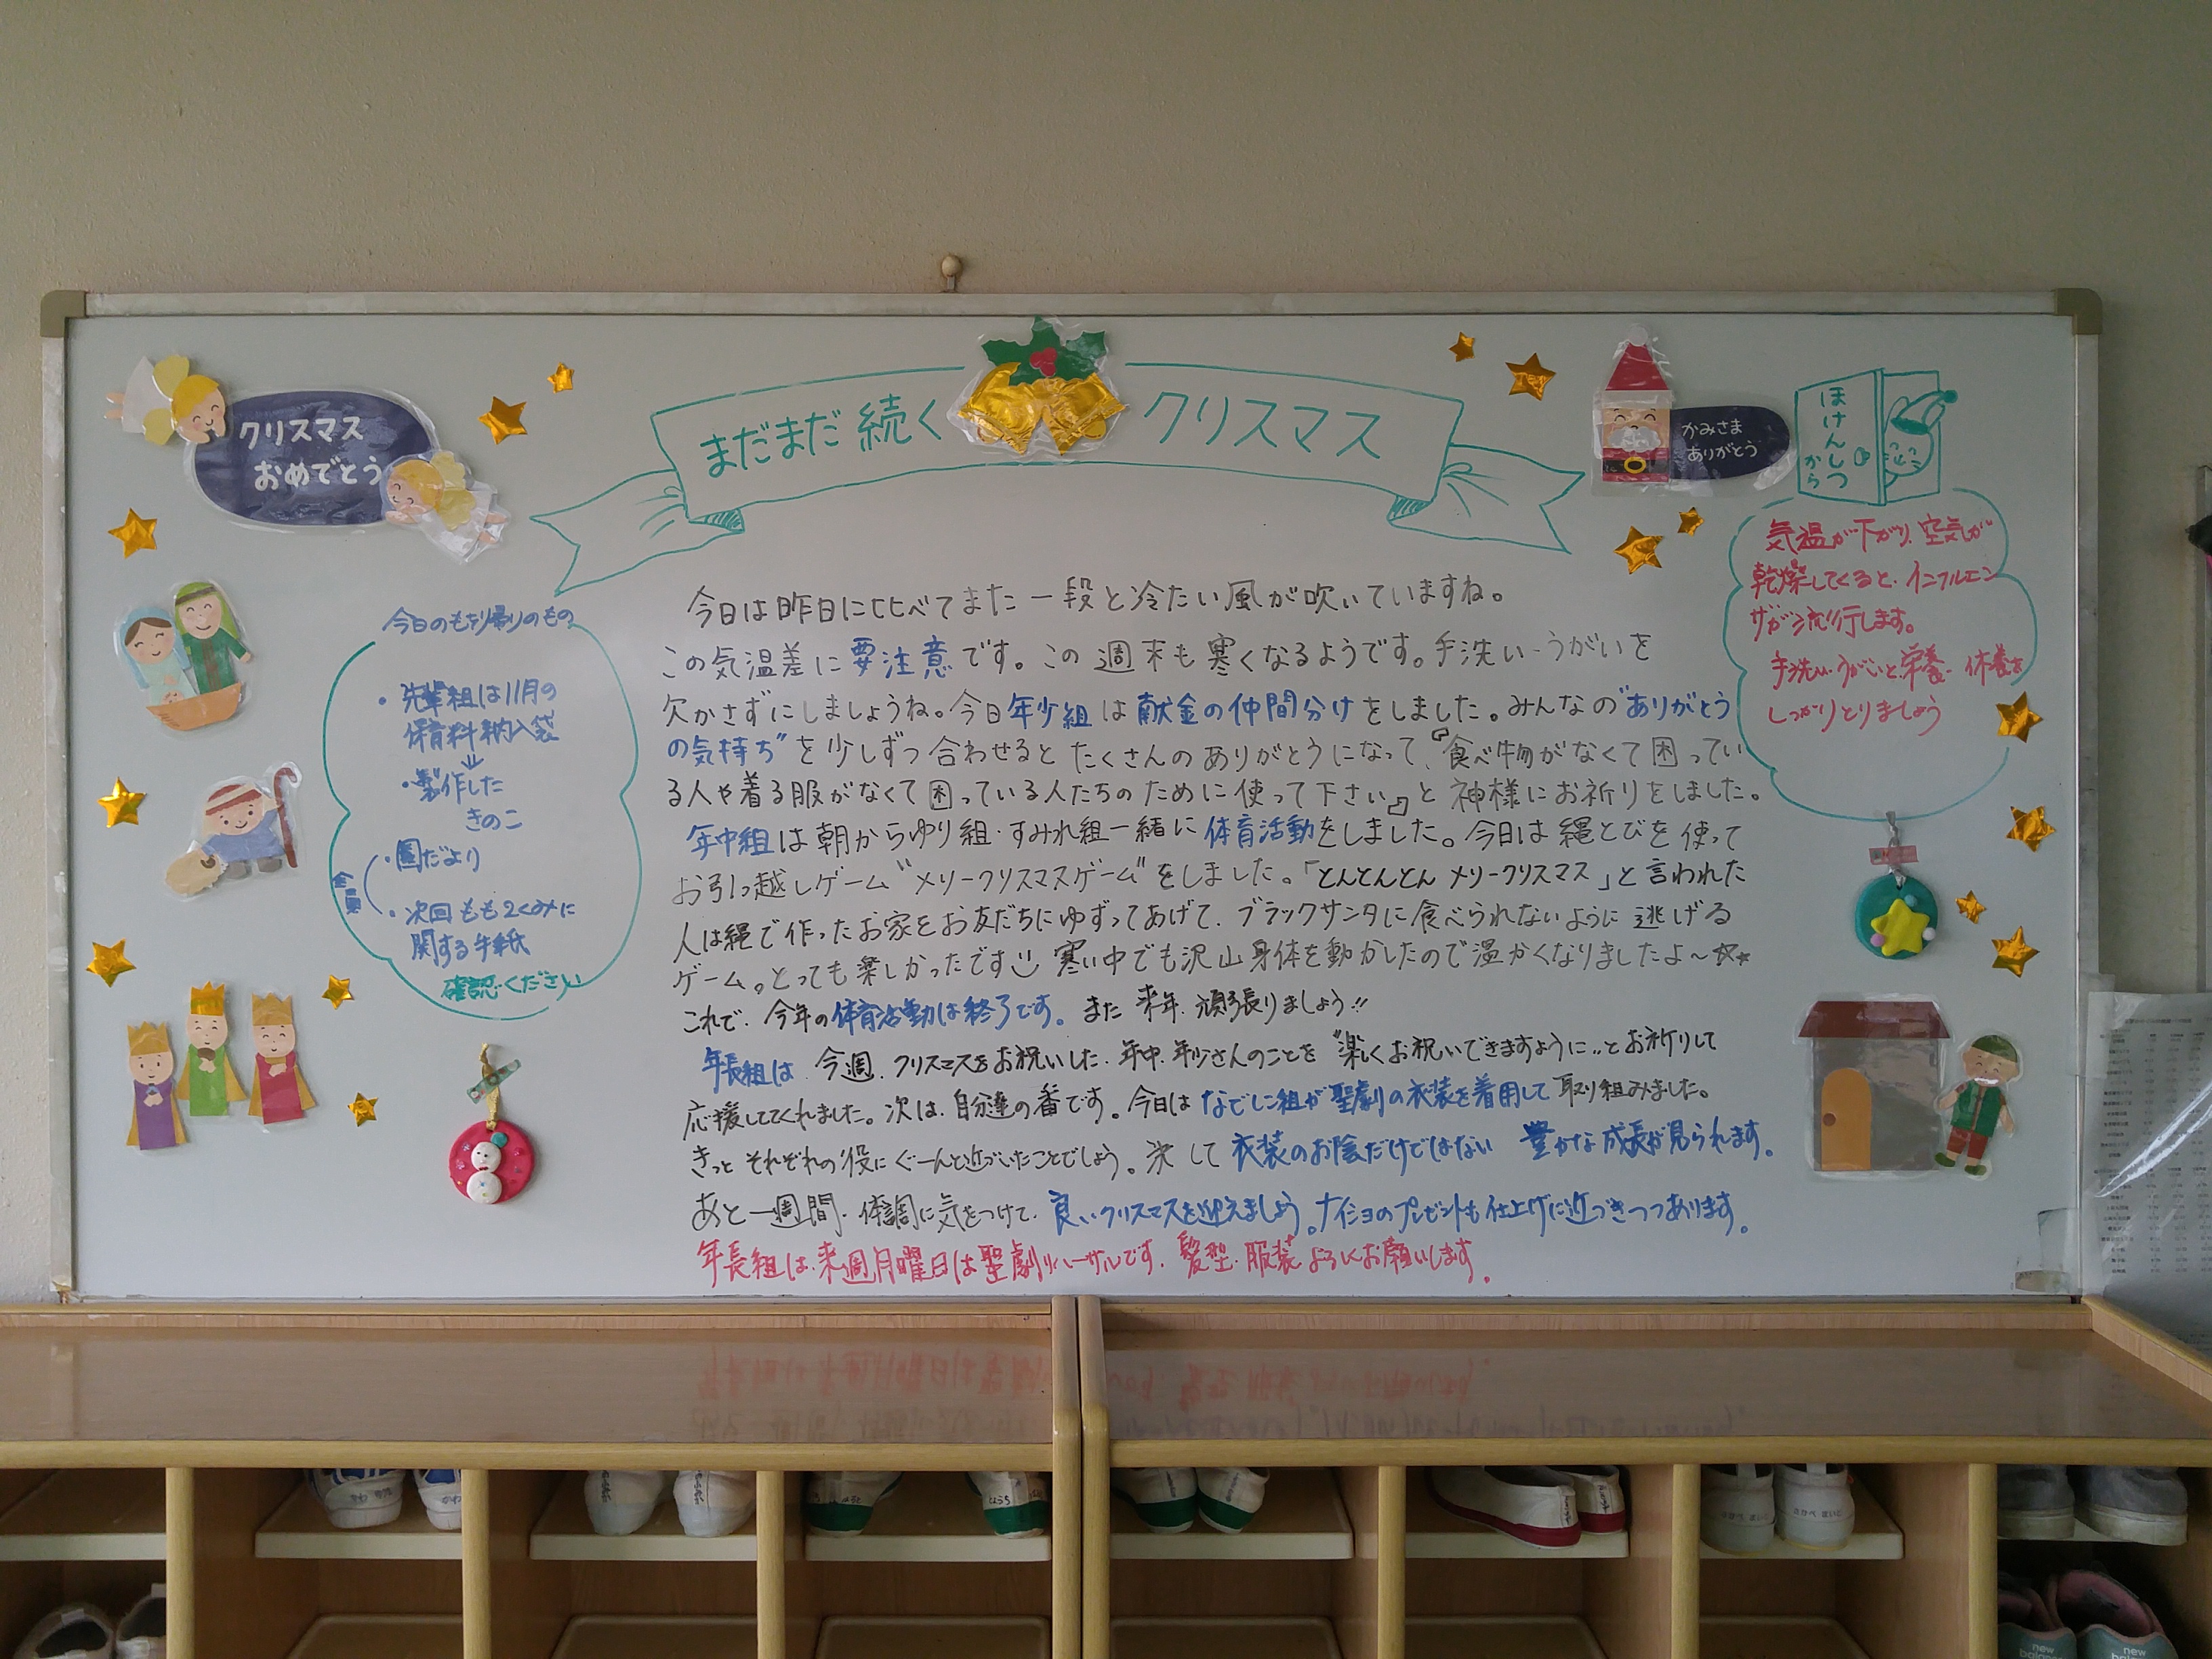 クリスマス
おめでとう
まだまだ続く
クリスマス
かみさま
ありがとう
ほけんしつ
から
気温が下がり、空気が
乾燥してくると、インフルエン
ザが流行します。
手洗い、うがいと、栄養、休養を
しっかりとりましょう
今日のもち帰りのもの
・先輩組は11月の
保育料納入袋
・製作した
きのこ
・園だより
全員
・次回もも2くみに
関する手紙
確認ください
今日は昨日に比べてまた一段と冷たい風が吹いていますね。
この気温差に要注意です。この週末も寒くなるようです。手洗い・うがいを
欠かさずにしましょうね。今日年少組は献金の仲間分けをしました。みんなの“ありがとう
の気持ち”を少しずつ合わせるとたくさんのありがとうになって、『食べ物がなくて困ってい
る人や着る服がなくて困っている人たちのために使って下さい』と神様にお祈りをしました。
年中組は朝からゆり組・すみれ組一緒に体育活動をしました。今日は縄とびを使って
お引っ越しゲーム“メリークリスマスゲーム”をしました。「とんとんとんメリークリスマス」と言われた
人は縄で作ったお家をお友だちにゆずってあげて、ブラックサンタに食べられないように逃げる
ゲーム。とっても楽しかったです 寒い中でも沢山身体を動かしたので温かくなりましたよ〜☆★
これで、今年の体育活動は終了です。また来年、頑張りましょう!!
年長組は、今週、クリスマスをお祝いした、年中、年少さんのことを“楽しくお祝いできますように”とお祈りして
応援してくれました。次は、自分達の番です。今日はなでしこ組が聖劇の衣装を着用して取り組みました。
きっとそれぞれの役にぐーんと近づいたことでしょう。決して衣装のお陰だけではない 豊かな成長が見られます。
あと一週間、体調に気をつけて、良いクリスマスを迎えましょう。ナイショのプレゼントも仕上げに近づきつつあります。
年長組は、来週月曜日は聖劇リハーサルです。髪型、服装よろしくお願いします。
さかべ さいと
new balance
new balance